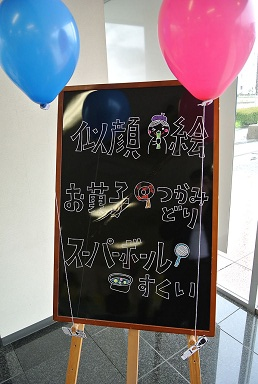 似顔絵
お菓子つかみ
どり
スーパーボール
すくい